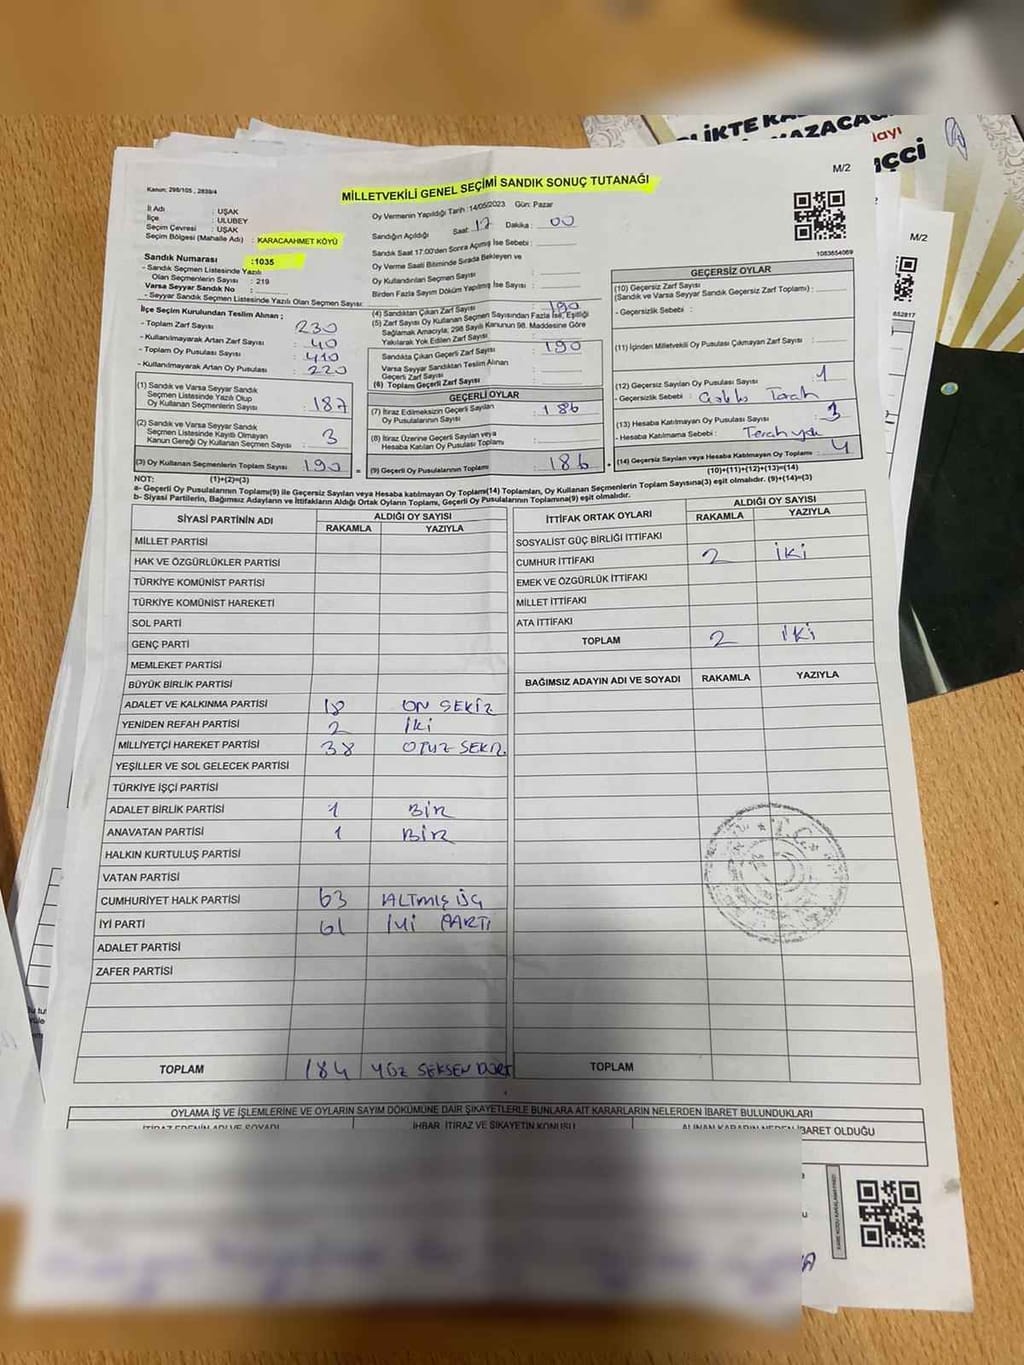 LİKTE KA
KAZACAĞ
dayı
İÇCİ
M/2
M/2
652817
Kanun: 298/105 , 2839/4
MİLLETVEKİLİ GENEL SEÇİMİ SANDIK SONUÇ TUTANAĞI
İl Adı : UŞAK
İlçe : ULUBEY
Seçim Çevresi : UŞAK
Seçim Bölgesi (Mahalle Adı) : KARACAAHMET KÖYÜ
Sandık Numarası :1035
- Sandık Seçmen Listesinde Yazılı
Olan Seçmenlerin Sayısı : 219
Varsa Seyyar Sandık No :
- Seyyar Sandık Seçmen Listesinde Yazılı Olan Seçmen Sayısı:
Oy Vermenin Yapıldığı Tarih :14/05/2023 Gün: Pazar
Sandığın Açıldığı Saat : 17 Dakika : 00
Sandık Saat 17:00'den Sonra Açımış İse Sebebi :
Oy Verme Saati Bitiminde Sırada Bekleyen ve
Oy Kullandırılan Seçmen Sayısı :
Birden Fazla Sayım Döküm Yapılmış İse Sayısı :
1083654069
İlçe Seçim Kurulundan Teslim Alınan ;
- Toplam Zarf Sayısı : 230
- Kullanılmayarak Artan Zarf Sayısı : 40
- Toplam Oy Pusulası Sayısı : 410
- Kullanılmayarak Artan Oy Pusulası : 220
(1) Sandık ve Varsa Seyyar Sandık
Seçmen Listesinde Yazılı Olup
Oy Kullanan Seçmenlerin Sayısı : 187
(2) Sandık ve Varsa Seyyar Sandık
Seçmen Listesinde Kayıtlı Olmayan
Kanun Gereği Oy Kullanan Seçmen Sayısı : 3
(3) Oy Kullanan Seçmenlerin Toplam Sayısı : 190 =
(1)+(2)=(3)
(4) Sandıktan Çıkan Zarf Sayısı : 190
(5) Zarf Sayısı Oy Kullanan Seçmen Sayısından Fazla İse, Eşitliği
Sağlamak Amacıyla; 298 Sayılı Kanunun 98. Maddesine Göre
Yakılarak Yok Edilen Zarf Sayısı :
Sandıkta Çıkan Geçerli Zarf Sayısı : 190
Varsa Seyyar Sandıktan Teslim Alınan
Geçerli Zarf Sayısı :
(6) Toplam Geçerli Zarf Sayısı :
GEÇERLİ OYLAR
(7) İtiraz Edilmeksizin Geçerli Sayılan
Oy Pusulalarının Sayısı : 186
(8) İtiraz Üzerine Geçerli Sayılan veya
Hesaba Katılan Oy Pusulası Toplamı :
(9) Geçerli Oy Pusulalarının Toplamı : 186 +
GEÇERSİZ OYLAR
(10) Geçersiz Zarf Sayısı
(Sandık ve Varsa Seyyar Sandık Geçersiz Zarf Toplamı) :
- Geçersizlik Sebebi :
(11) İçinden Milletvekili Oy Pusulası Çıkmayan Zarf Sayısı :
(12) Geçersiz Sayılan Oy Pusulası Sayısı : 1
- Geçersizlik Sebebi :
(13) Hesaba Katılmayan Oy Pusulası Sayısı : 3
- Hesaba Katılmama Sebebi :
(14) Geçersiz Sayılan veya Hesaba Katılmayan Oy Toplamı : 4
(10)+(11)+(12)+(13)=(14)
NOT:
a- Geçerli Oy Pusulalarının Toplamı(9) ile Geçersiz Sayılan veya Hesaba katılmayan Oy Toplamı(14) Toplamları, Oy Kullanan Seçmenlerin Toplam Sayısına(3) eşit olmalıdır. (9)+(14)=(3)
b- Siyasi Partilerin, Bağımsız Adayların ve İttifakların Aldığı Ortak Oyların Toplamı, Geçerli Oy Pusulalarının Toplamına(9) eşit olmalıdır.
SİYASİ PARTİNİN ADI ALDIĞI OY SAYISI
RAKAMLA YAZIYLA
MİLLET PARTİSİ
HAK VE ÖZGÜRLÜKLER PARTİSİ
TÜRKİYE KOMÜNİST PARTİSİ
TÜRKİYE KOMÜNİST HAREKETİ
SOL PARTİ
GENÇ PARTİ
MEMLEKET PARTİSİ
BÜYÜK BİRLİK PARTİSİ
ADALET VE KALKINMA PARTİSİ 18 ON SEKİZ
YENİDEN REFAH PARTİSİ 2 İKİ
MİLLİYETÇİ HAREKET PARTİSİ 38 OTUZ SEKİZ
YEŞİLLER VE SOL GELECEK PARTİSİ
TÜRKİYE İŞÇİ PARTİSİ
ADALET BİRLİK PARTİSİ 1 BİR
ANAVATAN PARTİSİ 1 BİR
HALKIN KURTULUŞ PARTİSİ
VATAN PARTİSİ
CUMHURİYET HALK PARTİSİ 63 ALTMIŞ ÜÇ
İYİ PARTİ 61 İYİ PARTİ
ADALET PARTİSİ
ZAFER PARTİSİ
TOPLAM 184 YÜZ SEKSEN DÖRT
İTTİFAK ORTAK OYLARI ALDIĞI OY SAYISI
RAKAMLA YAZIYLA
SOSYALİST GÜÇ BİRLİĞİ İTTİFAKI
CUMHUR İTTİFAKI 2 İKİ
EMEK VE ÖZGÜRLÜK İTTİFAKI
MİLLET İTTİFAKI
ATA İTTİFAKI
TOPLAM 2 İKİ
BAĞIMSIZ ADAYIN ADI VE SOYADI RAKAMLA YAZIYLA
T.C.
TOPLAM
OYLAMA İŞ VE İŞLEMLERİNE VE OYLARIN SAYIM DÖKÜMÜNE DAİR ŞİKAYETLERLE BUNLARA AİT KARARLARIN NELERDEN İBARET BULUNDUKLARI
İTİRAZ EDENİN ADI VE SOYADI İHBAR, İTİRAZ VE ŞİKAYETİN KONUSU ALINAN KARARIN NEDEN İBARET OLDUĞU